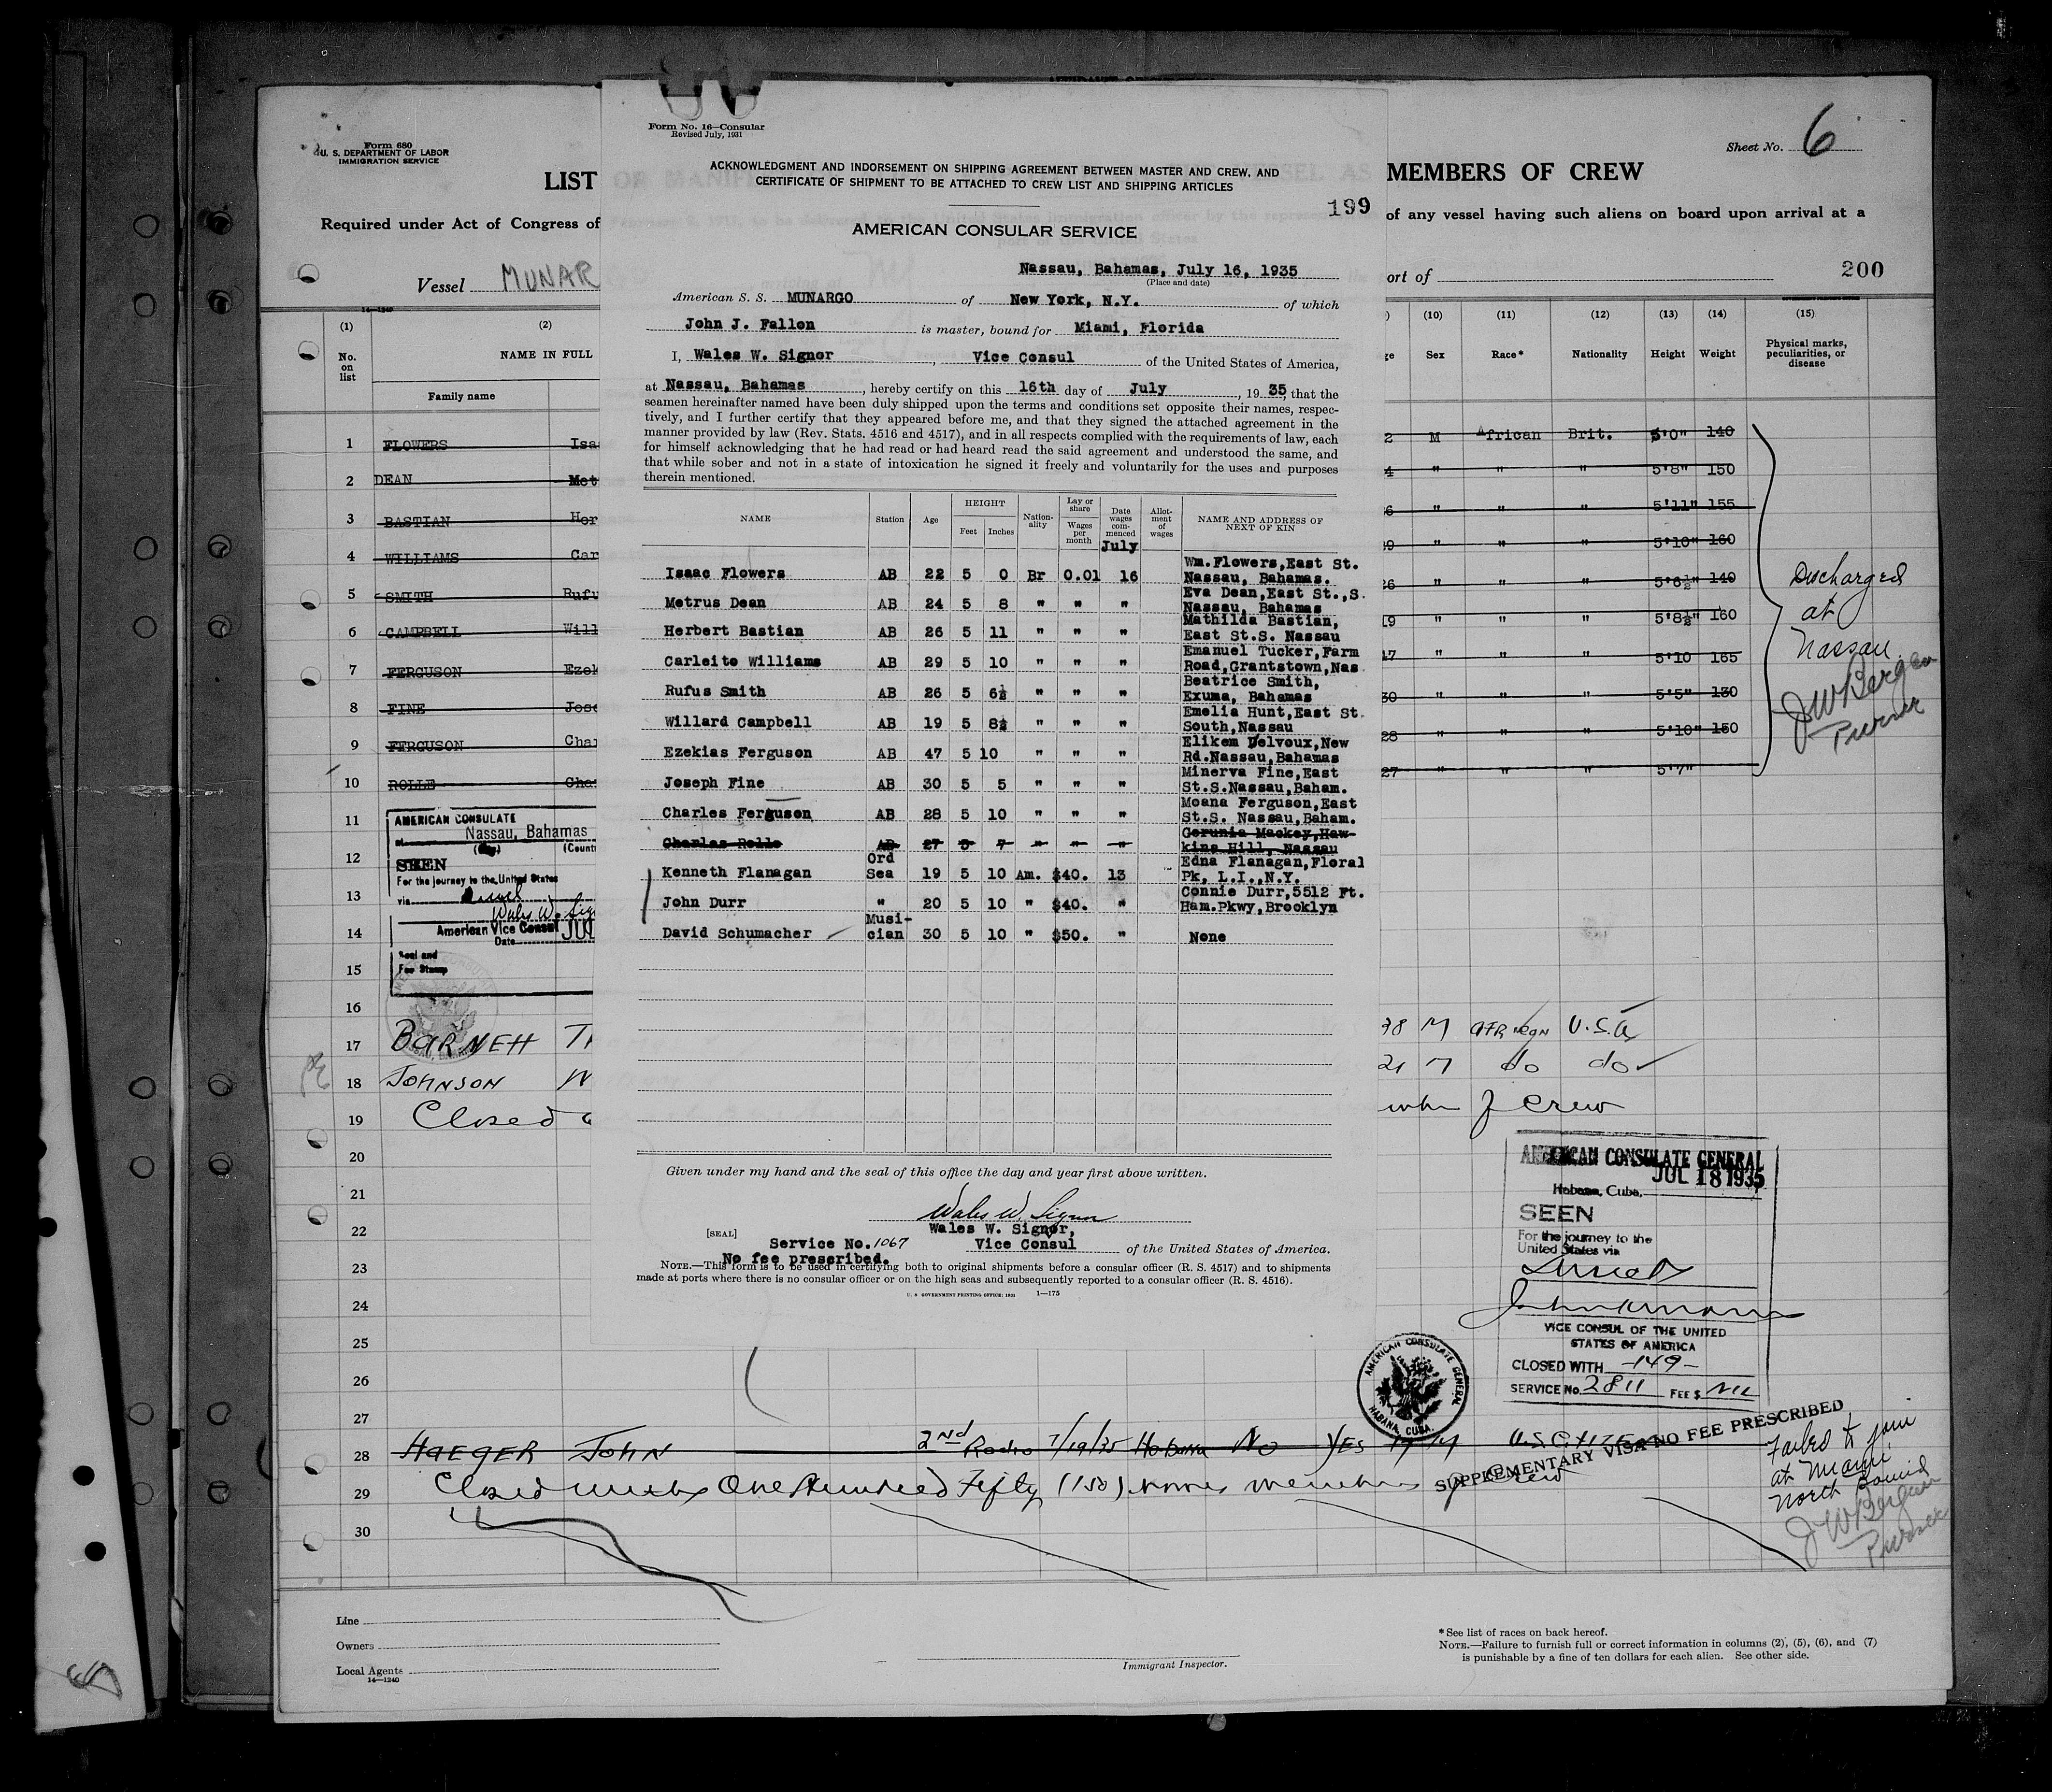 Form 680
U. S. DEPARTMENT OF LABOR
IMMIGRATION SERVICE
Sheet No. 6
LIST
MEMBERS OF CREW
Required under Act of Congress of
of any vessel having such aliens on board upon arrival at a
Vessel MUNAR
ort of
200
14—1240
(1) (2)
No. on list
NAME IN FULL
Family name
1 FLOWERS Isa
2 DEAN Met
3 BASTIAN Her
4 WILLIAMS Car
5 SMITH Rufu
6 CAMPBELL Will
7 FERGUSON Ezek
8 FINE Jose
9 FERGUSON Char
10 ROLLE Cha
11
12
13
14
15
16
17 BARNETT
18 JOHNSON W
19 Closed
20
21
22
23
24
25
26
27
28 HAEGER JOHN 2nd Radio 7/19/35 Habana No YES 19 M U.S. CITIZEN
29 Closed with One Hundred Fifty (150) names members of crew
30
AMERICAN CONSULATE
at Nassau, Bahamas
(City) (Count
SEEN
For the journey to the United States
via Direct
Wales W. Sig
American Vice Consul
Date JUL
Seal and
Fee Stamp
Form No. 16—Consular
Revised July, 1931
ACKNOWLEDGMENT AND INDORSEMENT ON SHIPPING AGREEMENT BETWEEN MASTER AND CREW, AND
CERTIFICATE OF SHIPMENT TO BE ATTACHED TO CREW LIST AND SHIPPING ARTICLES
199
AMERICAN CONSULAR SERVICE
Nassau, Bahamas, July 16, 1935
(Place and date)
American S. S. MUNARGO of New York, N.Y. of which
John J. Fallon is master, bound for Miami, Florida
I, Wales W. Signor, Vice Consul of the United States of America,
at Nassau, Bahamas, hereby certify on this 16th day of July, 1935, that the
seamen hereinafter named have been duly shipped upon the terms and conditions set opposite their names, respec-
tively, and I further certify that they appeared before me, and that they signed the attached agreement in the
manner provided by law (Rev. Stats. 4516 and 4517), and in all respects complied with the requirements of law, each
for himself acknowledging that he had read or had heard read the said agreement and understood the same, and
that while sober and not in a state of intoxication he signed it freely and voluntarily for the uses and purposes
therein mentioned.
NAME Station Age HEIGHT Feet Inches Nation-ality Lay or share Wages per month Date wages com-menced July Allot-ment of wages NAME AND ADDRESS OF NEXT OF KIN
Isaac Flowers AB 22 5 0 Br 0.01 16 Wm.Flowers,East St. Nassau, Bahamas.
Metrus Dean AB 24 5 8 " " " Eva Dean,East St.,S. Nassau, Bahamas
Herbert Bastian AB 26 5 11 " " " Mathilda Bastian, East St.S. Nassau
Carleito Williams AB 29 5 10 " " " Emanuel Tucker,Farm Road,Grantstown,Nas.
Rufus Smith AB 26 5 6½ " " " Beatrice Smith, Exuma, Bahamas
Willard Campbell AB 19 5 8½ " " " Emelia Hunt,East St. South,Nassau
Ezekias Ferguson AB 47 5 10 " " " Elikem Delvoux,New Rd.Nassau,Bahamas
Joseph Fine AB 30 5 5 " " " Minerva Fine,East St.S.Nassau,Baham.
Charles Ferguson AB 28 5 10 " " " Moana Ferguson,East St.S. Nassau,Baham.
Charles Rolle AB 27 5 7 " " " Gerunia Mackey,Haw-kins Hill, Nassau
Kenneth Flanagan Ord Sea 19 5 10 Am. $40. 13 Edna Flanagan,Floral Pk, L.I.,N.Y.
John Durr " 20 5 10 " $40. " Connie Durr,5512 Ft. Ham.Pkwy,Brooklyn
David Schumacher Musi-cian 30 5 10 " $50. " None
Given under my hand and the seal of this office the day and year first above written.
Wales W. Signor
Wales W. Signor,
[SEAL]
Service No. 1067 Vice Consul of the United States of America.
No fee prescribed.
NOTE.—This form is to be used in certifying both to original shipments before a consular officer (R. S. 4517) and to shipments
made at ports where there is no consular officer or on the high seas and subsequently reported to a consular officer (R. S. 4516).
U. S. GOVERNMENT PRINTING OFFICE: 1931 1—175
ge (10) (11) (12) (13) (14) (15)
Sex Race* Nationality Height Weight Physical marks, peculiarities, or disease
2 M African Brit. 5'0" 140
4 " " " 5'8" 150
6 " " " 5'11" 155
29 " " " 5'10" 160
26 " " " 5'6½" 140
19 " " " 5'8½" 160
47 " " " 5'10 165
30 " " " 5'5" 130
28 " " " 5'10" 150
27 " " " 5'7"
Discharged
at
Nassau
J W Bergen
Purser
38 M AFRICAN U.S.A
21 M do do
of Crew
AMERICAN CONSULATE GENERAL
JUL 18 1935
Habana, Cuba,
SEEN
For the journey to the
United States via
Direct
VICE CONSUL OF THE UNITED
STATES OF AMERICA
CLOSED WITH -149-
SERVICE No. 2811 FEE $ NIL
AMERICAN CONSULATE GENERAL
HABANA, CUBA.
SUPPLEMENTARY VISA NO FEE PRESCRIBED
Failed to join
at Miami
North Bound
J W Bergen
Purser
Line
Owners
Local Agents
14—1240
Immigrant Inspector.
* See list of races on back hereof.
NOTE.—Failure to furnish full or correct information in columns (2), (5), (6), and (7)
is punishable by a fine of ten dollars for each alien. See other side.